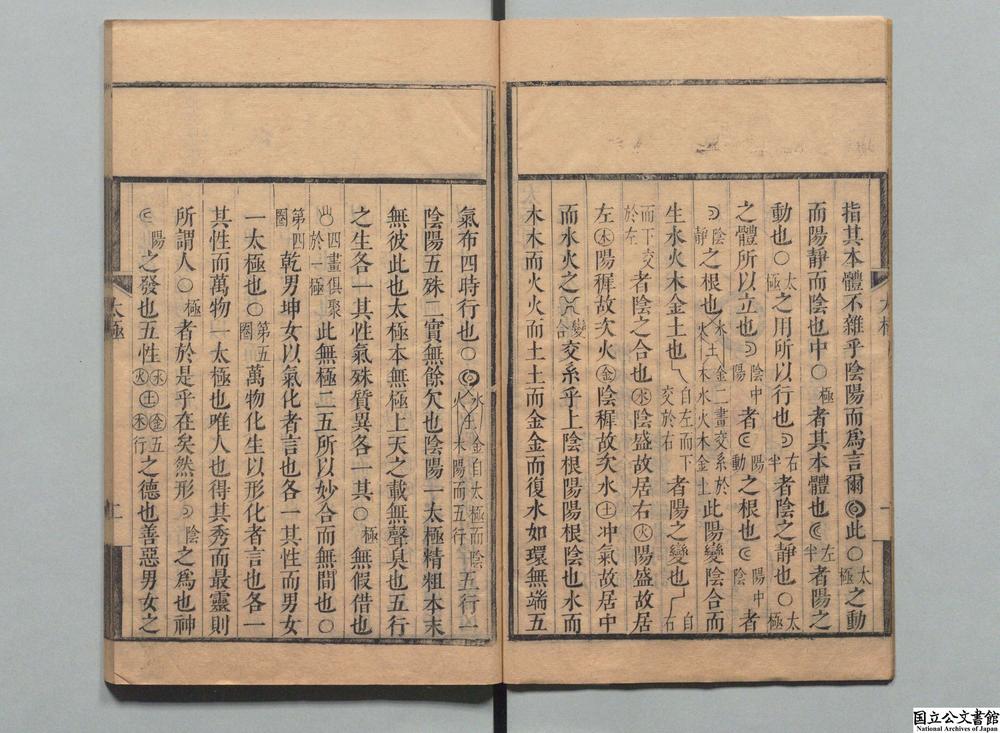 指其本體不雜乎陰陽而爲言爾◉此〇太極之動
而陽靜而陰也中〇極者其本體也☾左半者陽之
動也〇太極之用所以行也☽右半者陰之靜也〇太極
之體所以立也☽陰中陽者☾陽動之根也☾陽中陰者
☽陰靜之根也水土金火木二畫交系於水火木金土此陽變陰合而
生水火木金土也自左而下交於右者陽之變也自右
而下交於左者陰之合也㊌陰盛故居右㊋陽盛故居
左㊍陽穉故次火㊎陰穉故次水㊏冲氣故居中
而水火之變合交系乎上陰根陽陽根陰也水而
木木而火火而土土而金金而復水如環無端五
氣布四時行也〇◉水土金火木自太極而陰陽而五行五行一
陰陽五殊二實無餘欠也陰陽一太極精粗本末
無彼此也太極本無極上天之載無聲臭也五行
之生各一其性氣殊質異各一其〇極無假借也
四畫俱聚於一極此無極二五所以妙合而無間也〇
第四圈乾男坤女以氣化者言也各一其性而男女
一太極也〇第五圈萬物化生以形化者言也各一
其性而萬物一太極也唯人也得其秀而最靈則
所謂人〇極者於是乎在矣然形☽陰之爲也神
☾陽之發也五性㊌㊋㊏㊎㊍五行之德也善惡男女之
太極
一
太極
二
国立公文書館
National Archives of Japan